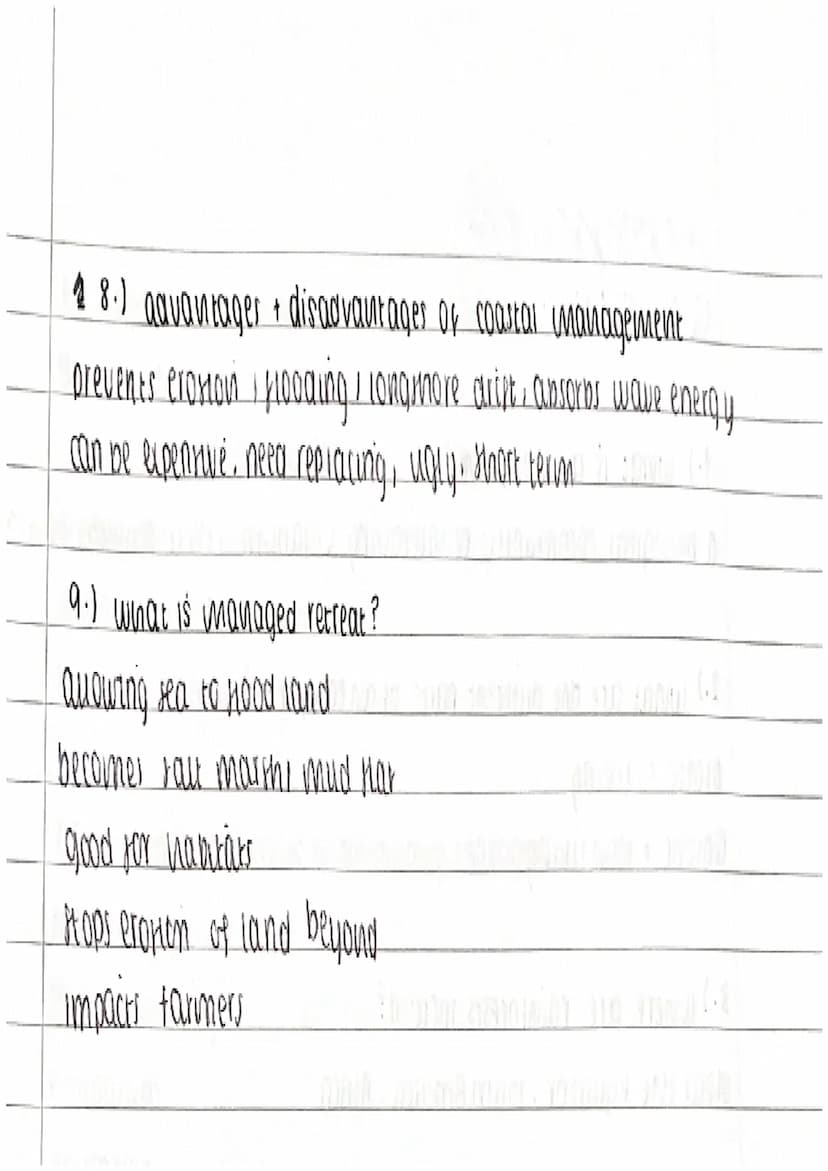 8.) advantages + disadvantages of coastal management
prevents erosion, flooding, longshore drift, absorbs wave energy
can be expensive, need replacing, ugly, short term
9.) what is managed retreat?
allowing sea to flood land
becomes salt marsh, mud flat
good for habitats
stops erosion of land beyond
impacts farmers